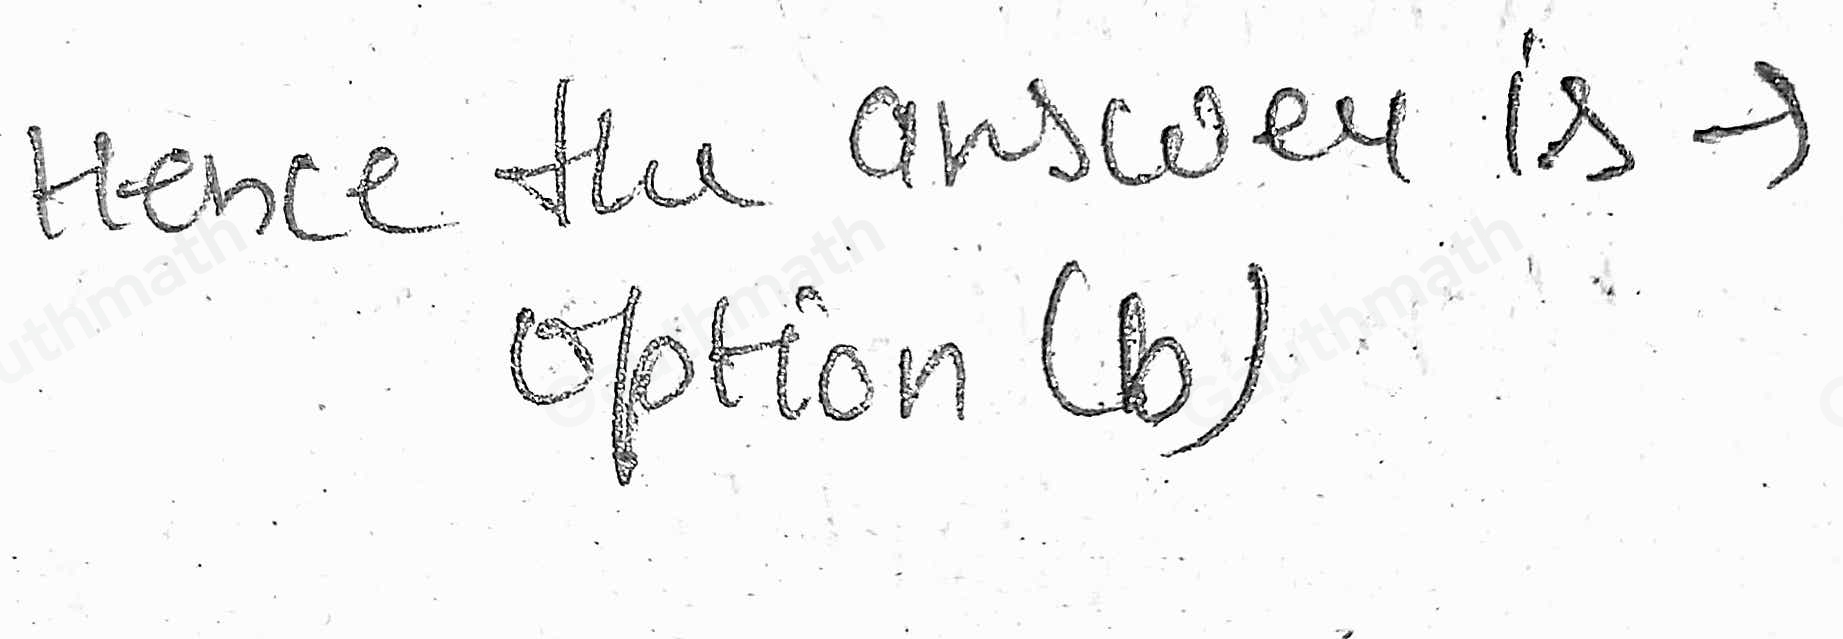 Hence the answer is →
option (b)
Gauthmath
Gauthmath
Gauthmath